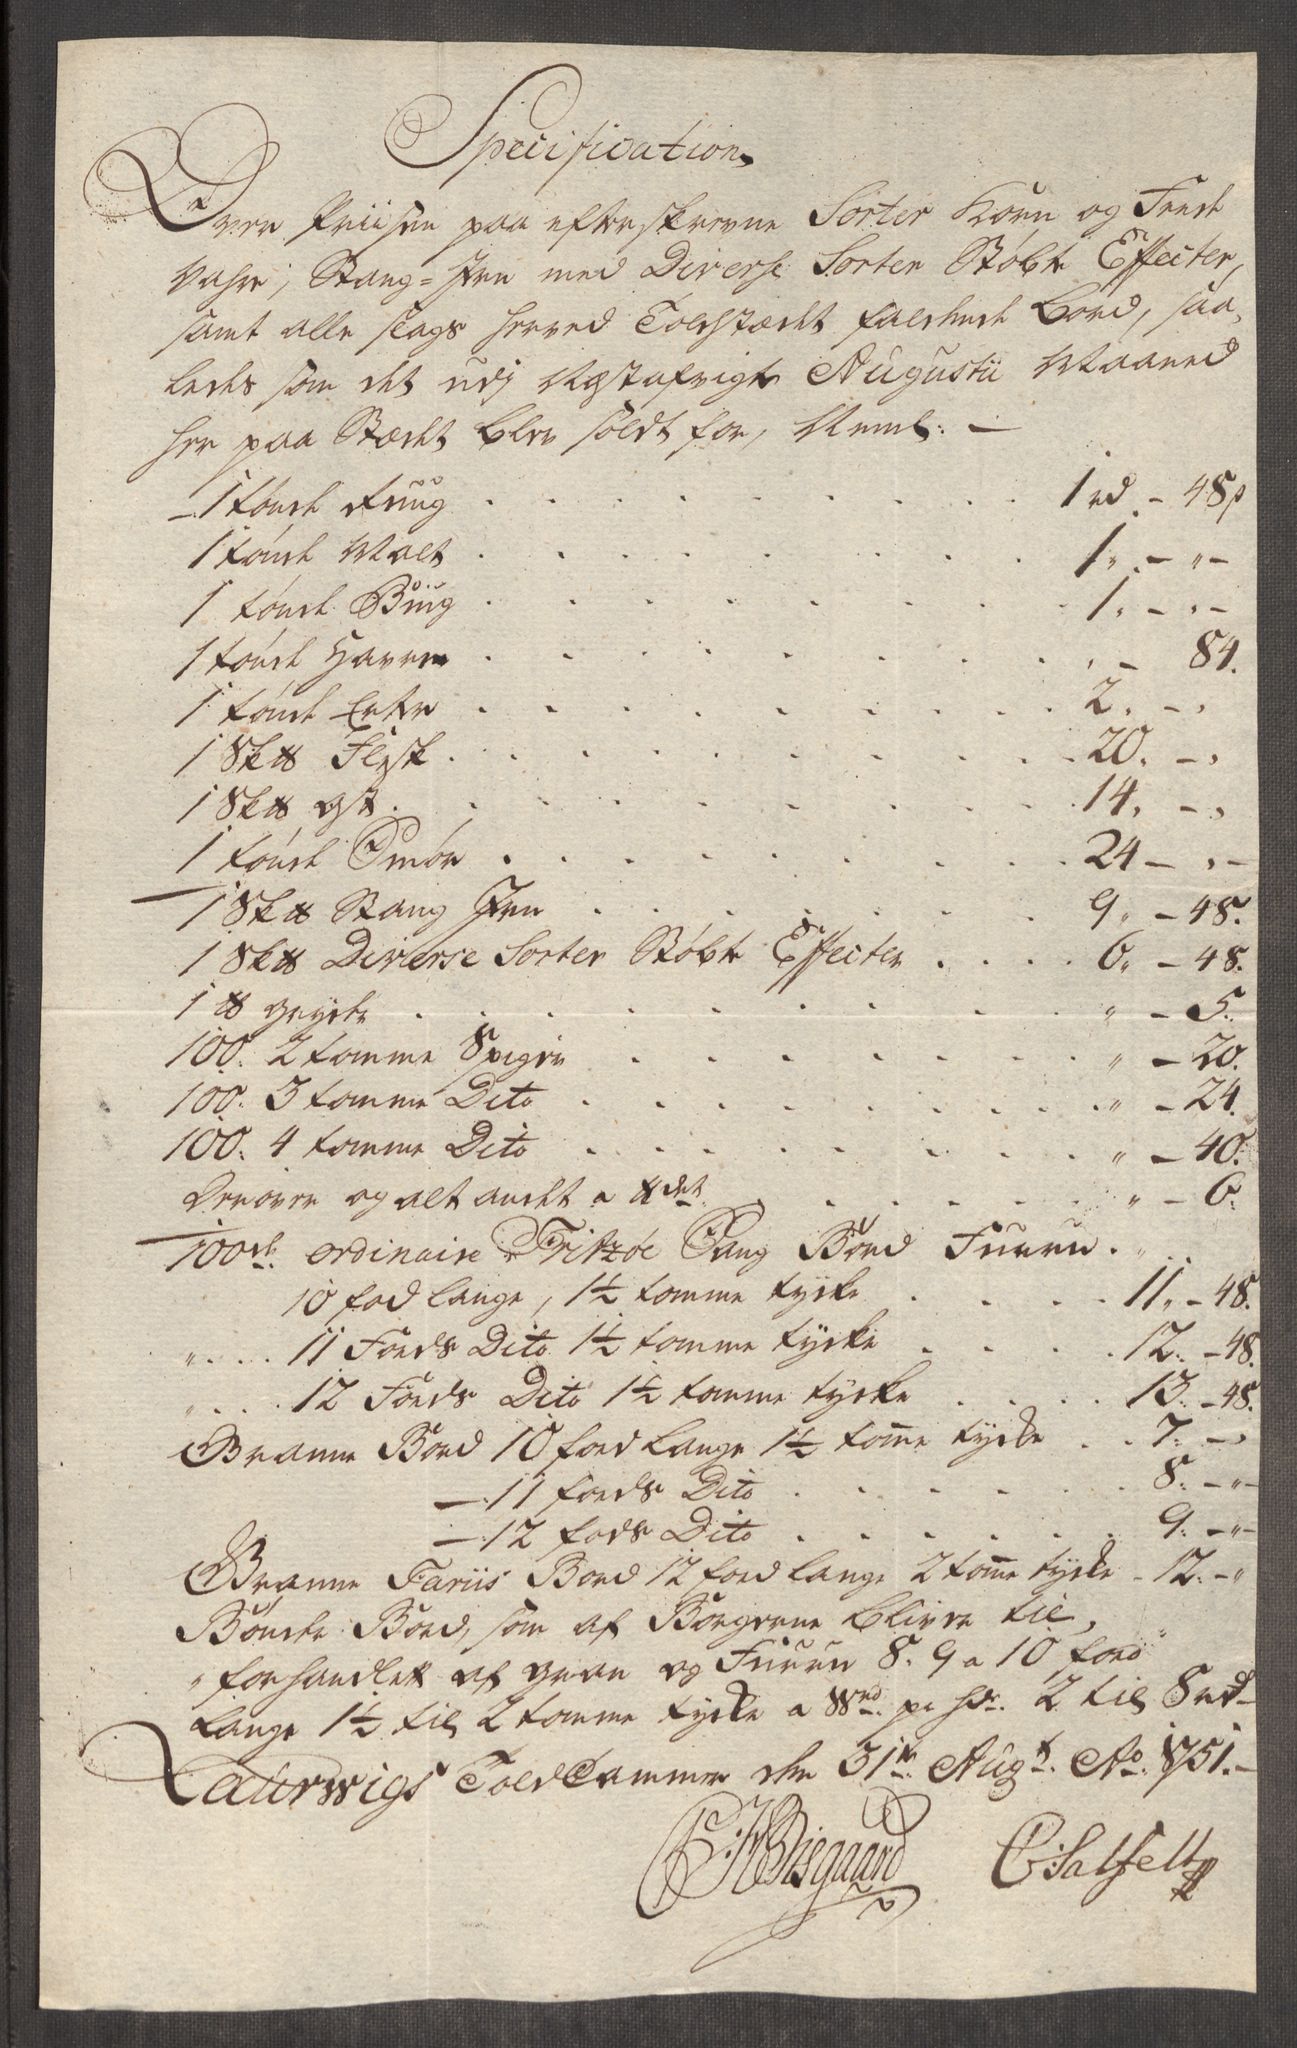 Specification
Over Priisen paa efterskrevne Sorter Korn og Fende
Vahre, Stang-Jern med Diverse Sorter Støbte Effecter,
samt alle slags herved Toldstædet faldende Bord, saa-
ledes som det udj næstafvigte Augustii Maaned
her paa Stædet blev soldt for, Neml: —
1 tønde Rug . . . 1 rd - 48 s
1 tønde Malt . . . 1 „ - „ -
1 tønde Biug . . . 1 „ - „ -
1 tønde Havre . . . „ - 84.
1 tønde Erter . . . 2 „ - „
1 Sk℔ Flesk . . . 20. - „
1 Sk℔ Ost . . . 14. - „
1 tønde Smør . . . 24 - „ -
1 Sk℔ Stang Jern . . . 9 „ - 48.
1 Sk℔ Diverse Sorter Støbte Effecter . . . 6 „ - 48.
1 ℔ Gryder . . . „ - 5.
100. 2 tomme Spiger . . . „ - 20.
100. 3 tomme Dito . . . „ - 24.
100. 4 tomme Dito . . . „ - 40.
Derover og alt andet a ℔det . . . „ - 6.
100de ordinaire Fritzøe Saug Bord Furru . „
10 fod lange, 1½ tomme tycke . . . 11. - 48.
„ . . . 11 Foeds Dito 1½ tomme tycke . . . 12. - 48.
„ . . . 12 Foeds Dito 1½ tomme tycke . . . 13. - 48.
Granne Bord 10 foed lange 1½ tom̅e tycke . . 7. - „
— 11 foeds Dito . . . 8. - „ -
— 12 fods Dito . . . 9. - „ -
Granne Fariis Bord 12 foed lange 2 tom̅e tycke - 12. - „
Bønder Bord, som af Borgerne blive til-
forhandlet af gran og Furru 8. 9 a 10 foed
lange 1½ til 2 tomme tycke a pr hdr. 2 til 8 rd -
Laurwigs Told Cammer den 31te Augt. Ao. 1751. -
Bisgaard C. Salfelt